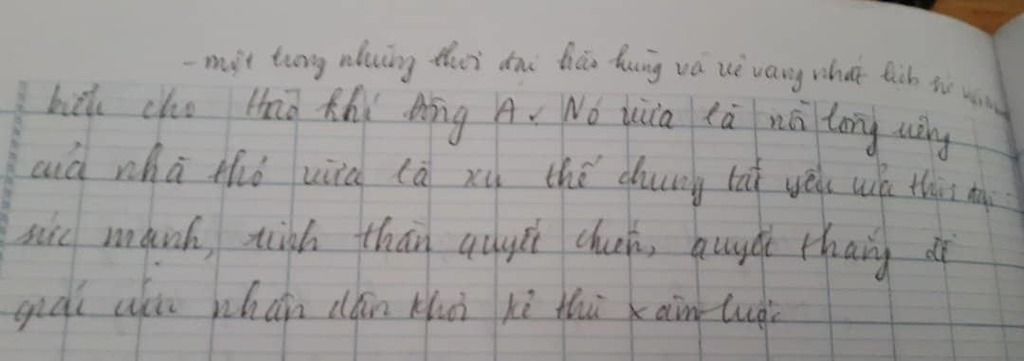 - một trong những thời đại hào hùng và vẻ vang nhất lịch sử
biểu cho Hào khí Đông A. Nó vừa là nỗi lòng riêng
của nhà thơ vừa là xu thế chung tất yếu của thời đại
sức mạnh, tinh thần quyết chiến, quyết thắng để
giải cứu nhân dân khỏi kẻ thù xâm lược